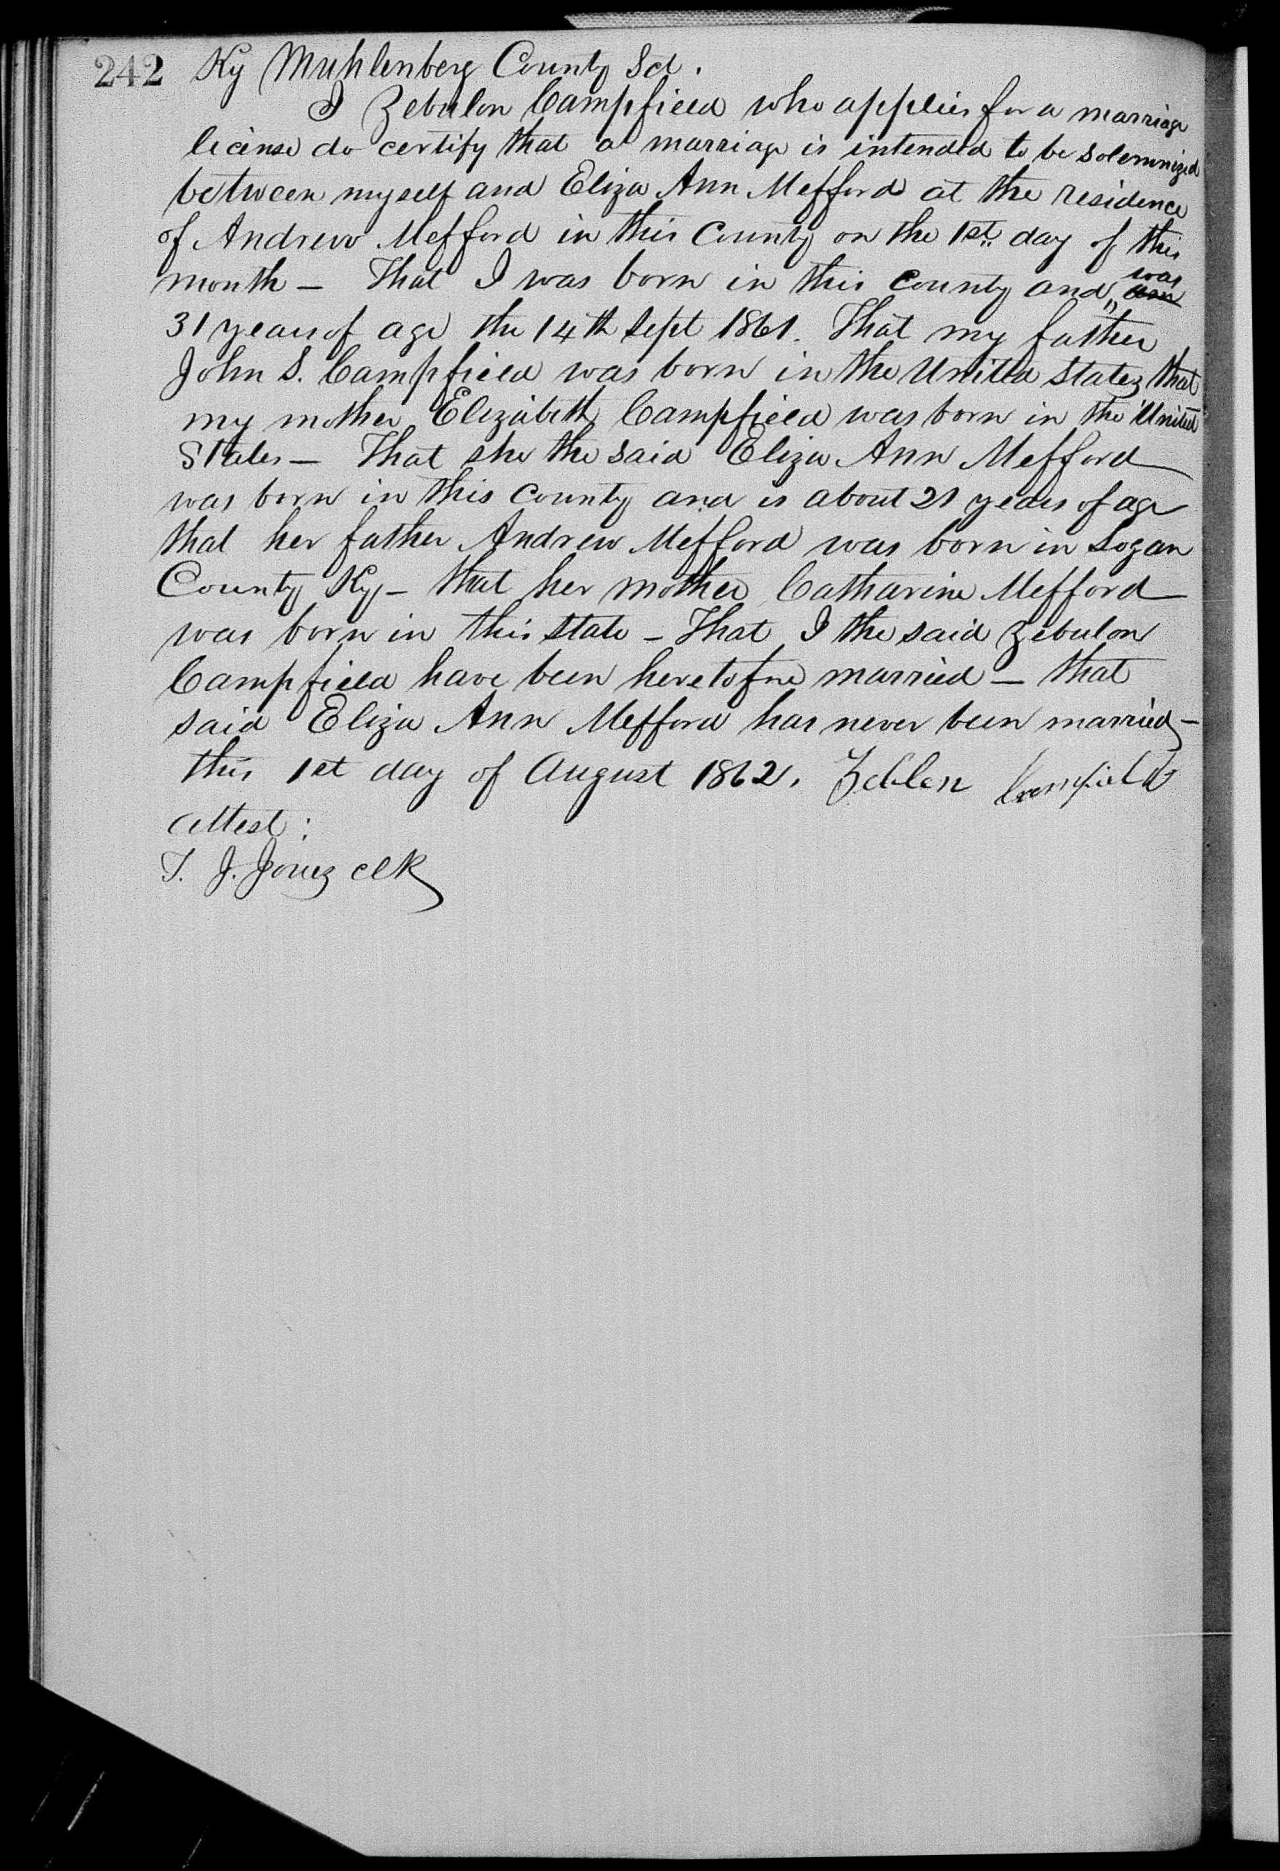 242 Ky Muhlenberg County Sct.
I Zebulon Campfield who applies for a marriage
license do certify that a marriage is intended to be solemnized
between myself and Eliza Ann Mefford at the residence
of Andrew Mefford in this County on the 1st day of this
month — That I was born in this county and was
31 years of age the 14th Sept 1861. That my father
John S. Campfield was born in the United States that
my mother Elizabeth Campfield was born in the United
States — That she the said Eliza Ann Mefford
was born in this county and is about 21 years of age
that her father Andrew Mefford was born in Logan
County Ky — that her mother Catharine Mefford
was born in this state — That I the said Zebulon
Campfield have been heretofore married — that
said Eliza Ann Mefford has never been married —
this 1st day of August 1862. Zeblen Camfield
Attest:
T. J. Jones clk